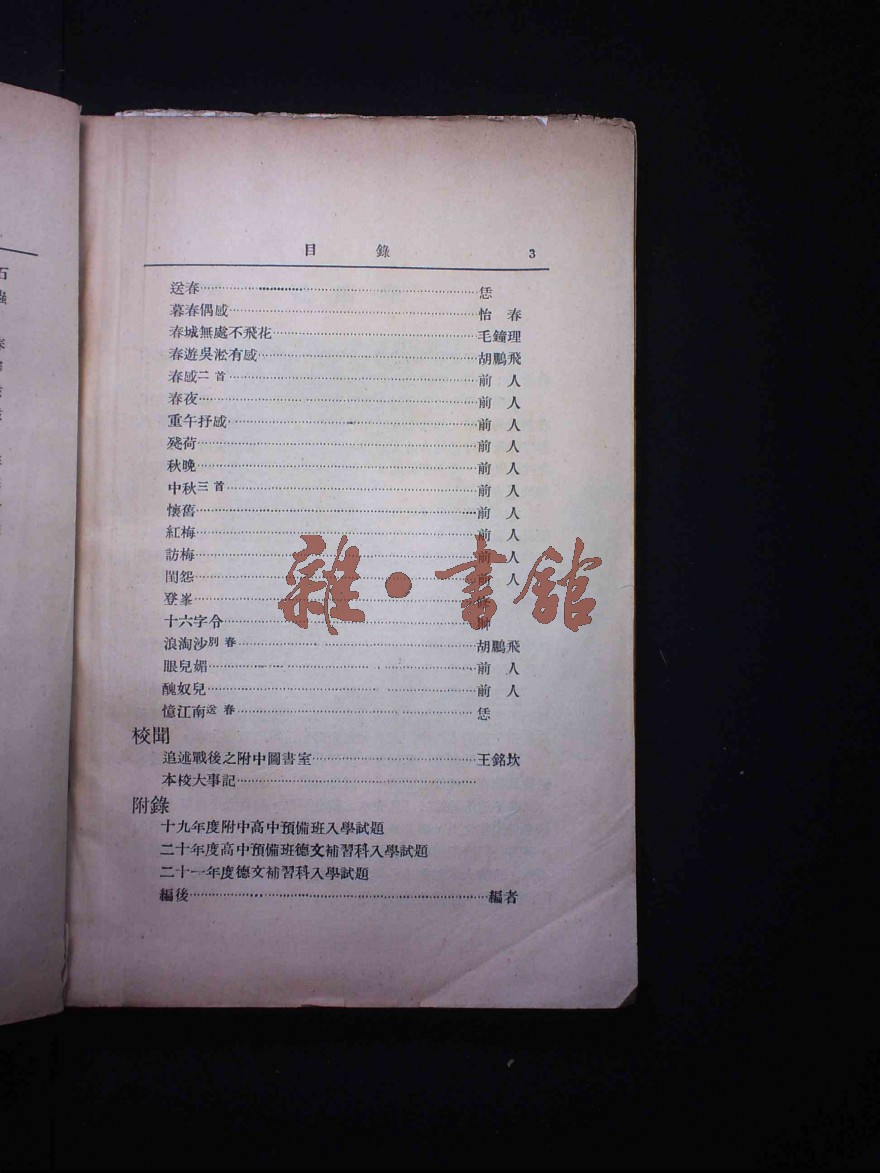 目錄 3
送春 恁
暮春偶感 怡春
春城無處不飛花 毛鐘理
春遊吳淞有感 胡鵬飛
春感二首 前人
春夜 前人
重午抒感 前人
殘荷 前人
秋晚 前人
中秋三首 前人
懷舊 前人
紅梅 前人
訪梅 前人
閨怨 前人
登峯
十六字令
浪淘沙別春 胡鵬飛
眼兒媚 前人
醜奴兒 前人
憶江南送春 恁
校聞
追述戰後之附中圖書室 王銘坎
本校大事記
附錄
十九年度附中高中預備班入學試題
二十年度高中預備班德文補習科入學試題
二十一年度德文補習科入學試題
編後 編者
雜·書館